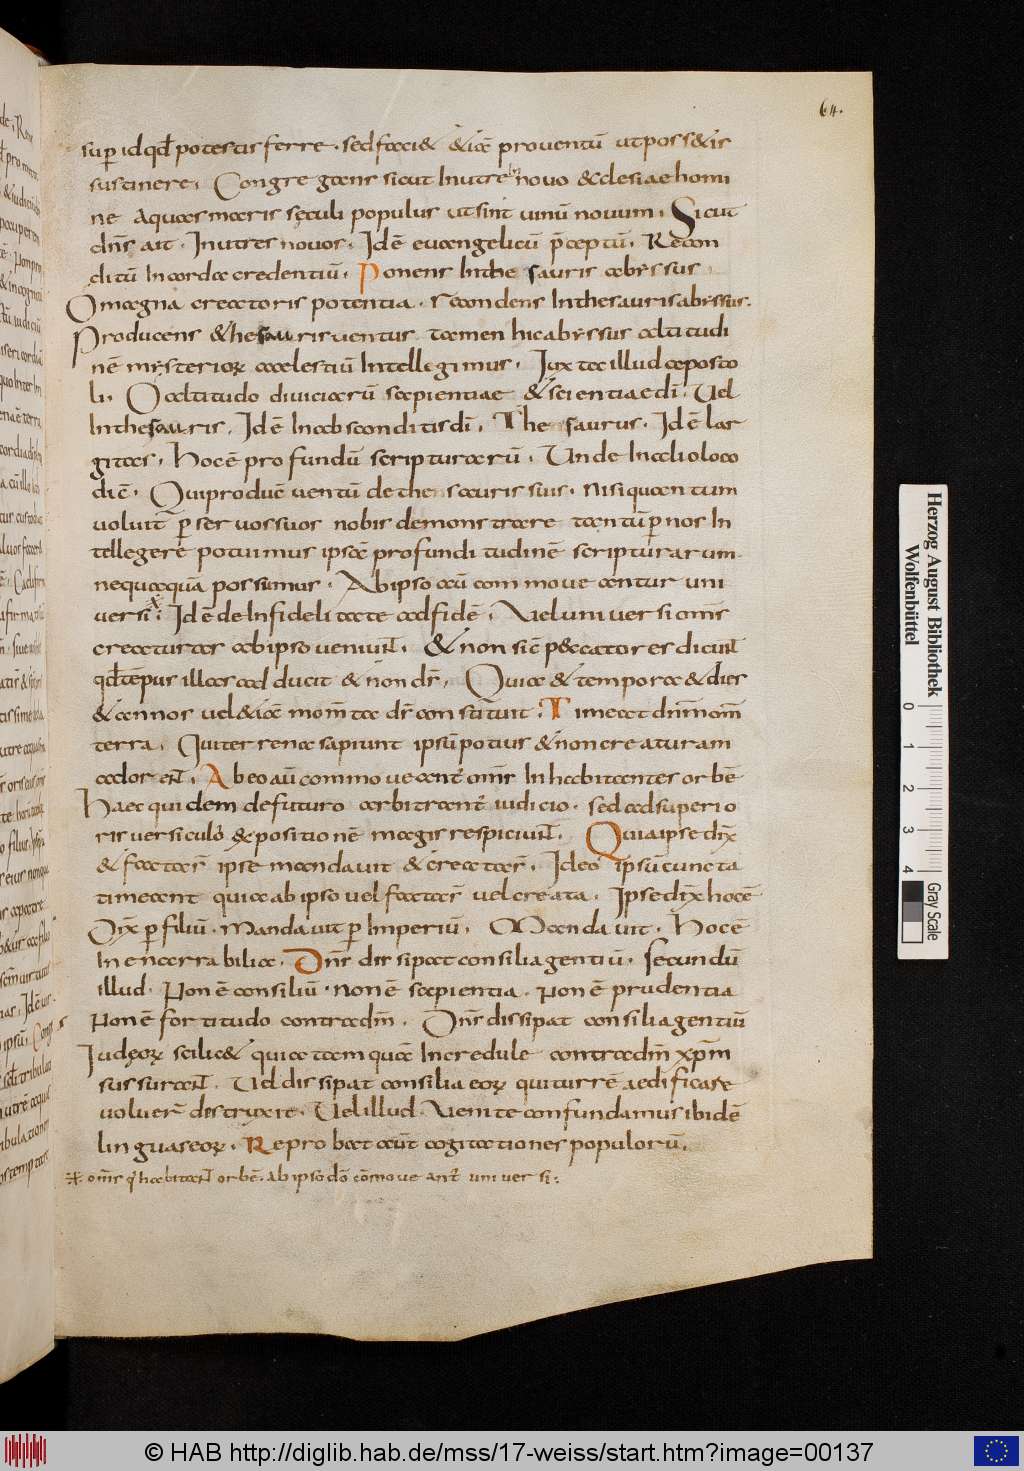 64.
sup id qđ potestis ferre. sed faciet &iā proventū ut possetis
sustinere. Congregans sicut in utre novo ecclesiae homi
ne aquas maris sęculi populus ut sint vinū novum. Sicut
dn̄s ait. In utres novos. Id ē evangelicū p̄ceptū. Recon
ditū in corda credentiū. Ponens in thesauris abyssus
O magna creatoris potentia. Recondens in thesauris abyssus.
Producens & thesauris ventus tamen hic abyssus altitudi
nē mysterioꝝ caelestiū intellegimus. Iuxta illud aposto
li. O altitudo diviciarū sapientiae & scientiae dī. Vel
In thesauris. Id ē In absconditis dī. Thesaurus. Id ē lar
gitas. Hoc ē profundū scripturarū. Unde in alio loco
dic̄. Qui produc̄ ventū de thesauris suis. Nisi quantum
voluit p servos suos nobis demonstrare tantū p nos In
tellegere potuimus ipsā profunditudinē scripturarum
nequaquā possumus. Ab ipso aū commoveantur uni
versi. Id ē de Infidelitate ad fidē. Vel universi om̄s
creaturas ab ipso veniunt̄. & non sic̄ peccatores dicunt̄
qđ tēpus illas adducit & non ds̄. Quia & tempora & dies
& annos vel &iā momīta ds̄ constituit. Timeat dn̄m om̄
terra. Qui terrena sapiunt ipsū potius & non creaturam
adorent̄. Ab eo aū commoveant om̄s Inhabitantes orbē
Haec quidem de futuro arbitrant iudicio. sed ad superio
ris versiculi expositionē magis respiciunt̄. Quia ipse dix̄
& facta s̄ ipse mandavit & creata s̄. Ideo ipsū cuncta
timeant quia ab ipso vel facta s̄ vel creata. Ipse dix̄ hoc ē
Dix̄ p filiū. Mandavit p Imperiū. Mandavit. Hoc ē
In enarrabilia. Dn̄s dissipat consilia gentiū. Secundū
illud. Non ē consiliū. non ē sapientia. Non ē prudentia
Non ē fortitudo contra dn̄m. Dn̄s dissipat consilia gentiū
Iudęoꝝ scilicet quia tamquā Incredule contra dn̄m xp̄m
sussurant̄. Vel dissipat consilia eoꝝ qui turrē aedificare
voluer̄ destruxit. Vel illud. Venite confundamus ibidē
linguas eoꝝ. Reprobat aūt cogitationes populorū.
om̄s qi habitant̄ orbē. Ab ipso dō cōmoveant universi:
Herzog August Bibliothek
Wolfenbüttel
0 1 2 3 4
Gray Scale
© HAB http://diglib.hab.de/mss/17-weiss/start.htm?image=00137